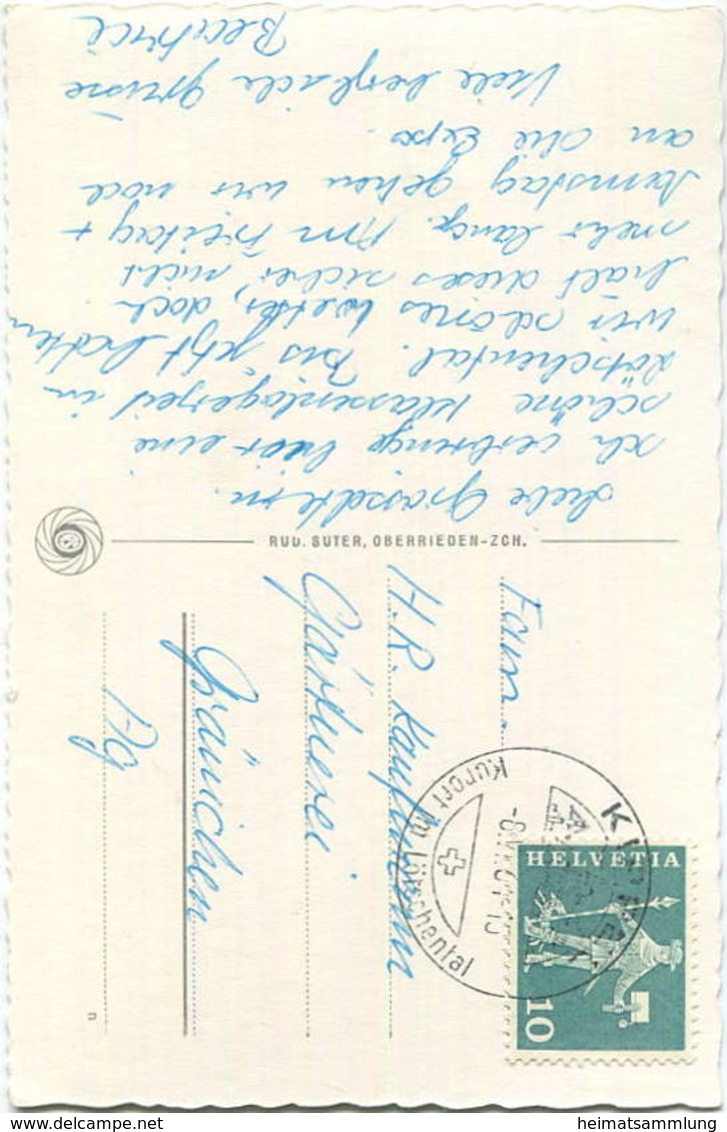 Liebe Grosseltern.
Ich verbringe hier eine
schöne Klassenlagerzeit im
Lötschental. Bis jetzt hatten
wir schönes Wetter, doch
halt dieses sicher, nicht
mehr lang. Am Freitag +
Samstag gehen wir noch
an die Expo.
Viele herzliche Grüsse
Beatrice
RUD. SUTER, OBERRIEDEN-ZCH.
Fam.
H.R. Kaufmann
Gärtnerei
Gränichen
Ag
Kurort im Lötschental
HELVETIA
10
n
heimatsammlung